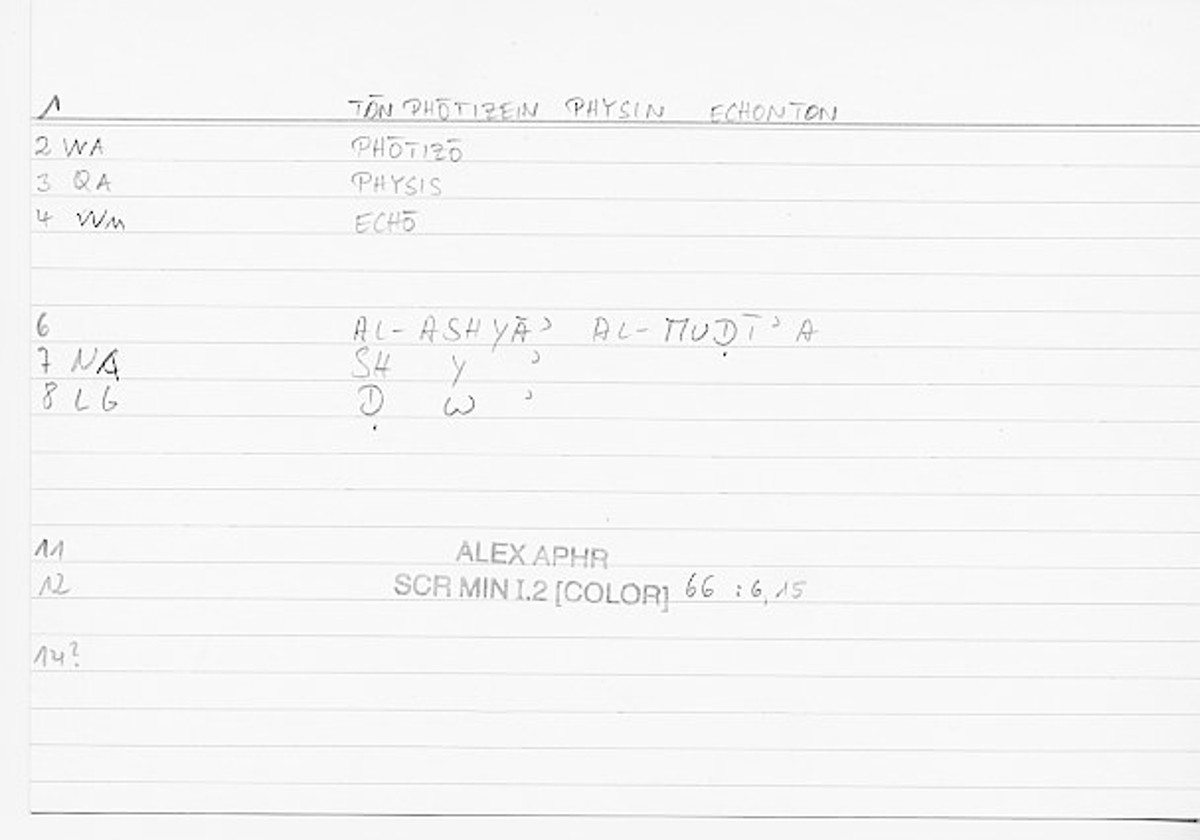 1 TŌN PHŌTIZEIN PHYSIN ECHONTON
2 WA PHŌTIZŌ
3 QA PHYSIS
4 Wm ECHŌ
6 AL-ASHYĀʾ AL-MUḌĪʾA
7 NA SH Y ʾ
8 LG Ḍ W ʾ
11 ALEX APHR
12 SCR MIN I.2 [COLOR] 66 : 6,15
14?